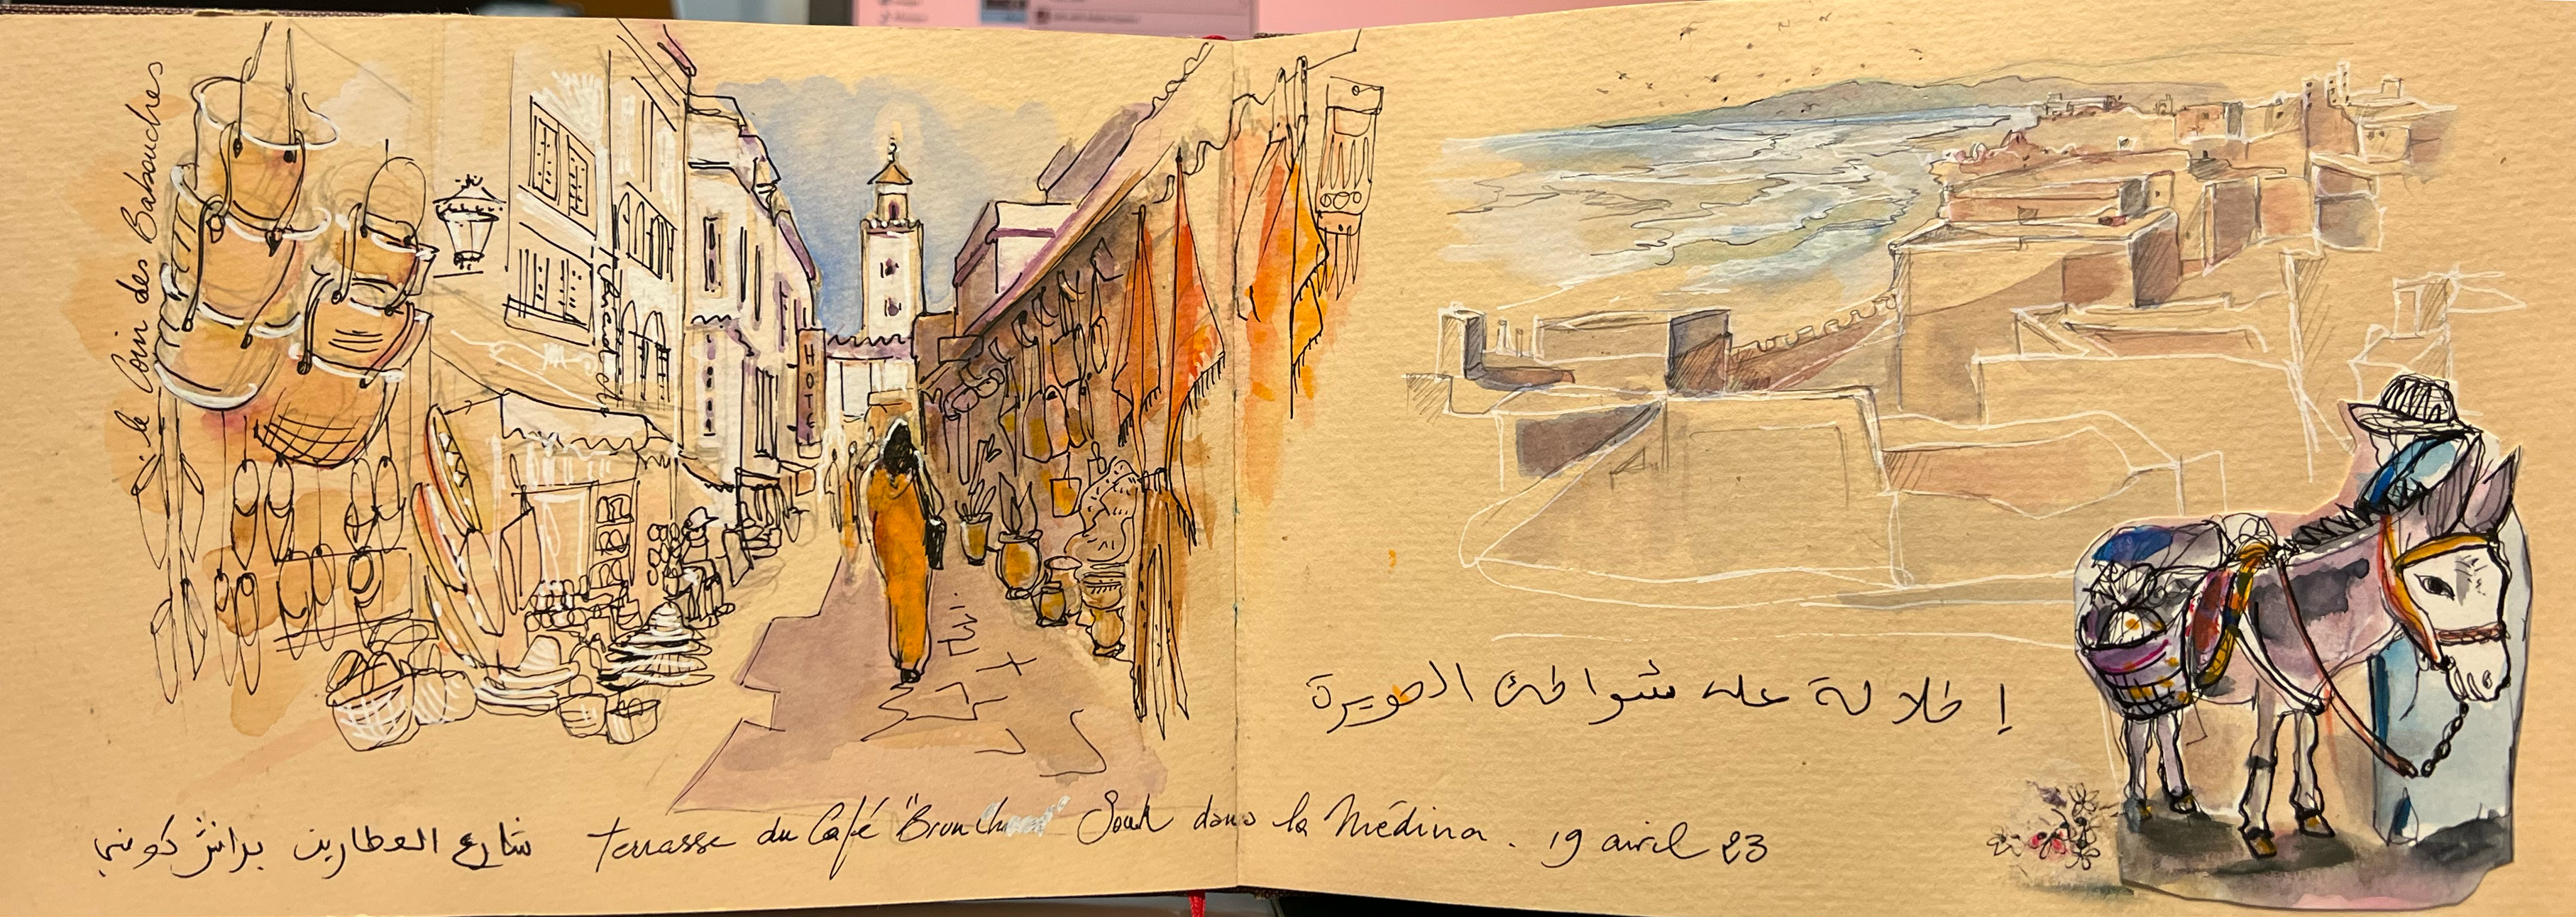 le Coin des Babouches
HOTEL
إطلالة على شواطئ الصويرة
شارع العطارين
Terrasse du Café "Brunch Souk dans la Médina. 19 avril 23